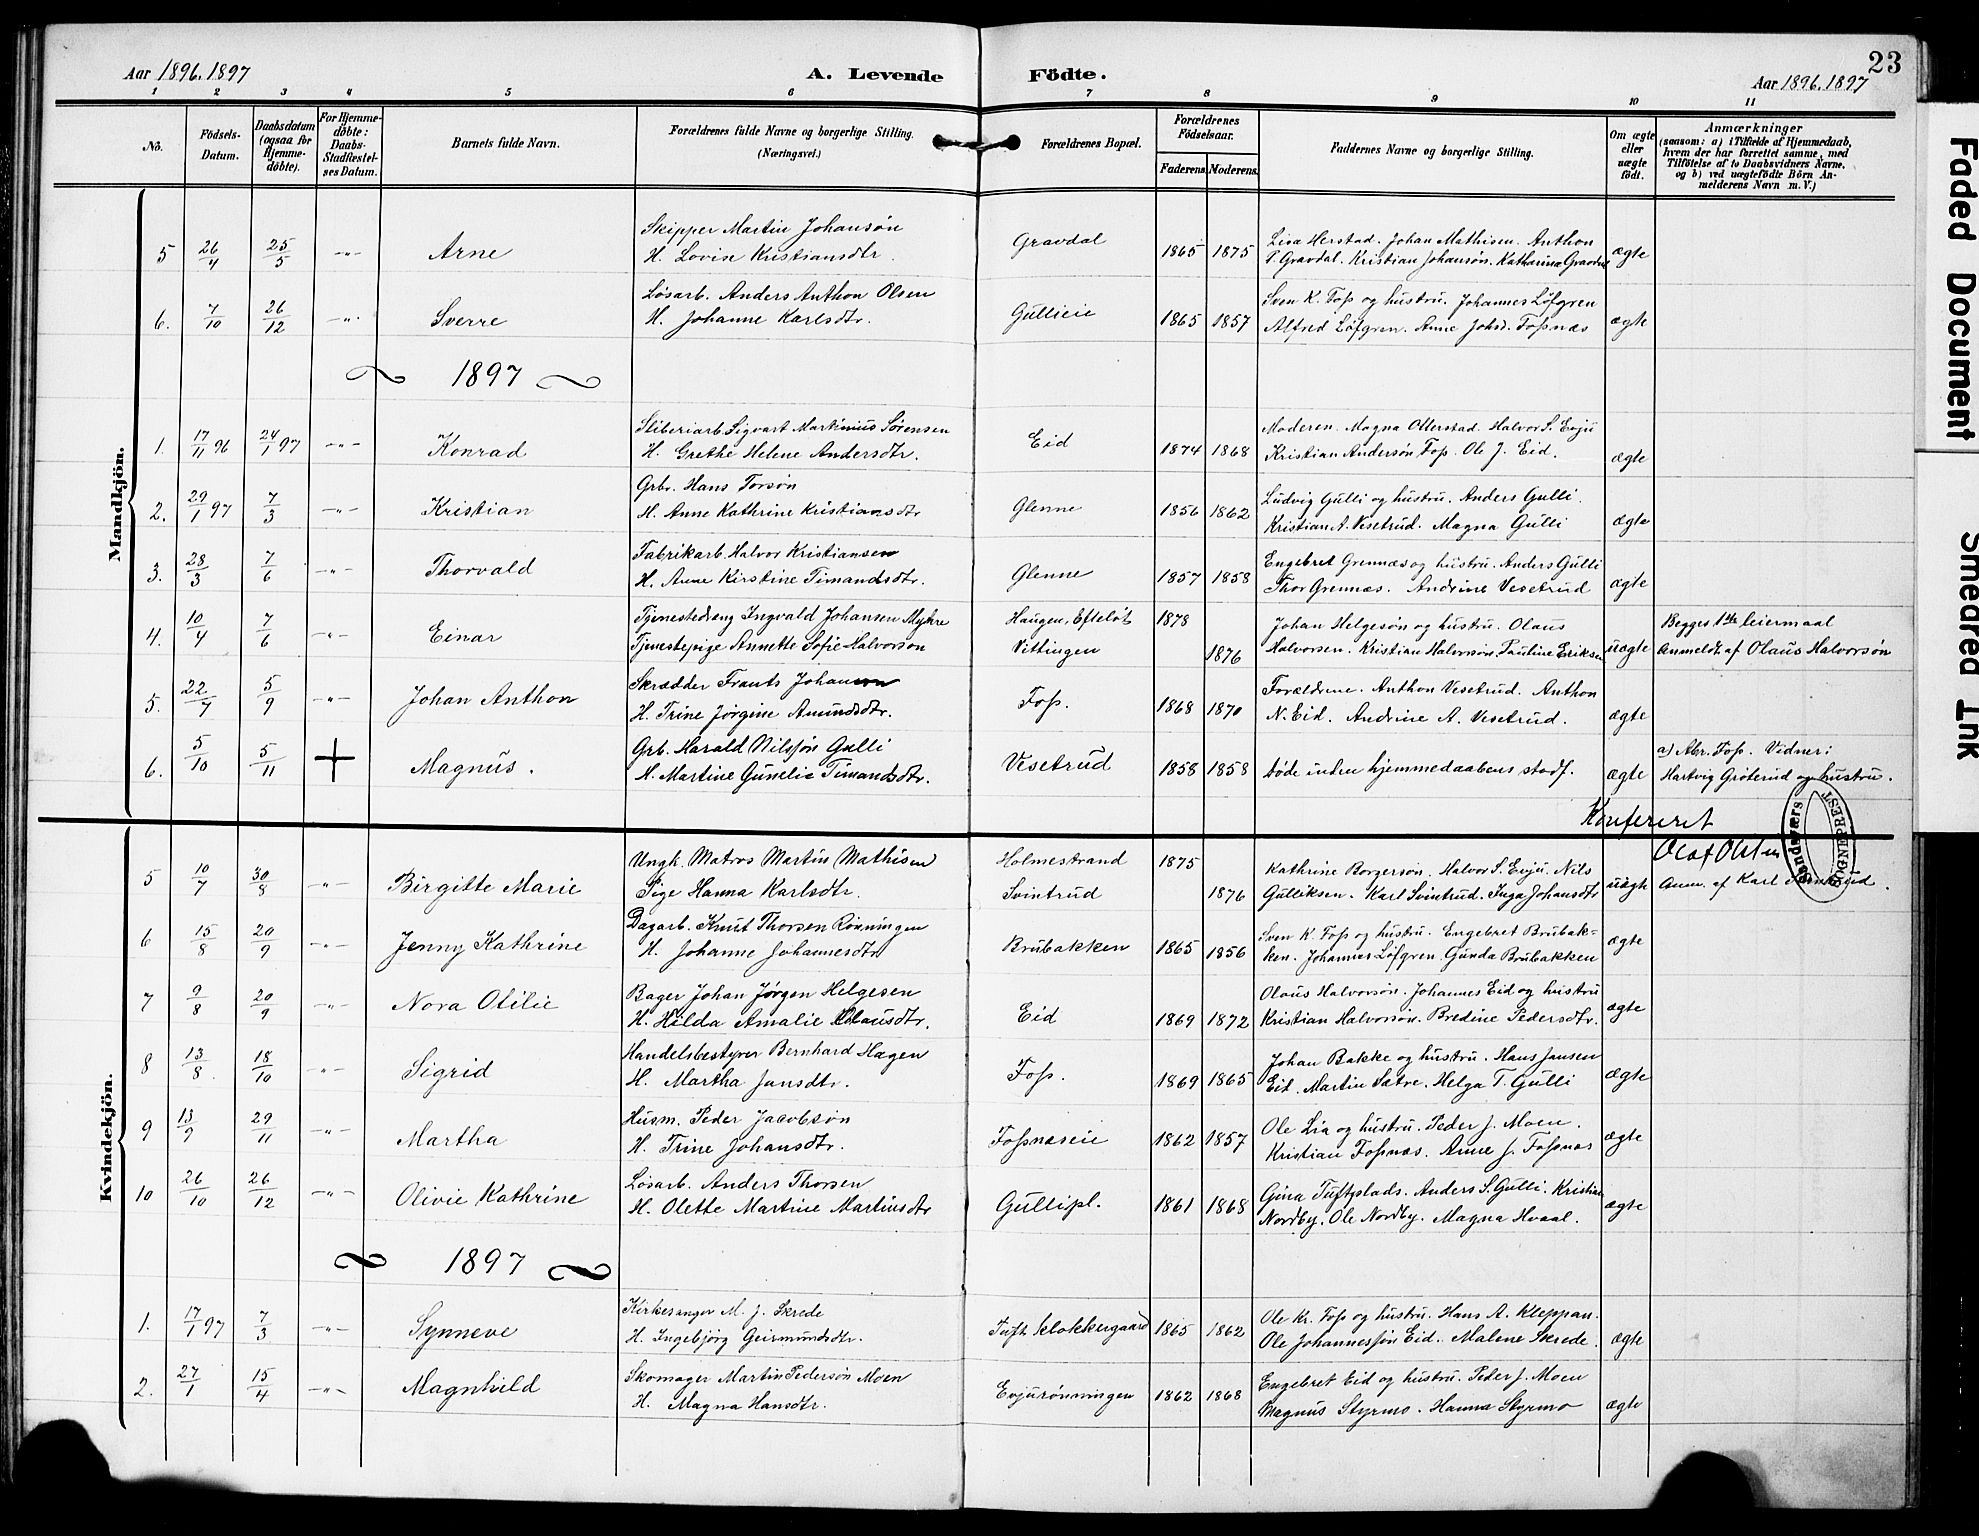 23
Aar 1896. 1897
A. Levende Födte.
Aar 1896. 1897
1 2 3 4 5 6 7 8 9 10 11
No.
Födsels-Datum.
Daabsdatum (ogsaa for Hjemmedöbte).
For Hjemmedöbte: Daabs-Stadfæstelses Datum.
Barnets fulde Navn.
Forældrenes fulde Navne og borgerlige Stilling. (Næringsvei.)
Forældrenes Bopæl.
Forældrenes Födselsaar.
Faderens Moderens
Faddernes Navne og borgerlige Stilling.
Om ægte eller uægte födt.
Anmærkninger
(saasom: a) i Tilfælde af Hjemmedaab, hvem der har forrettet samme, med Tilföielse af to Daabsvidners Navne, og b) ved uægtefödte Börn Anmelderens Navn m. V.)
Mandkjön.
5 26/4 25/5 -"- Arne
Skipper Martin Johansøn
H. Lovise Kristiansdtr.
Gravdal 1865 1875
Lisa Herstad. Johan Mathisen. Anthon
T. Gravdal. Kristian Johansøn. Katharina Gravdal
ægte
6. 7/10 26/12 -"- Sverre
Løsarb. Anders Anthon Olsen
H. Johanne Karlsdtr.
Gullieie 1865 1857
Sven K. Foss og hustru. Johannes Løfgren
Alfred Løfgren. Anne Johsd. Fossnæs
ægte
1897
1. 17/11 96 24/1 97 -"- Konrad
Sliberiarb. Sigvart Martinius Sørensen
H. Grethe Helene Andersdtr.
Eid 1874 1868
Moderen. Magna Ollerstad. Halvor S. Evju
Kristian Andersøn Foss. Ole J. Eid.
ægte
2. 29/1 97 7/3 -"- Kristian
Grbr. Hans Torsøn
H. Anne Kathrine Kristiansdtr
Glenne 1856 1862
Ludvig Gulli og hustru. Anders Gulli.
Kristian A. Vesetrud. Magna Gulli
ægte
3. 28/3 7/6 -"- Thorvald
Fabrikarb. Halvor Kristiansen
H. Anne Kirstine Timandsdtr.
Glenne 1857 1858
Engebret Grennæs og hustru. Anders Gulli
Thor Grennæs. Andrine Vesetrud
ægte
4. 10/4 7/6 -"- Einar
Tjenestedreng Ingvald Johansen Myhre
Tjenestepige Annette Sofie Halvorsøn
Haugen, Efteløt 1878
Vittingen 1876
Johan Helgesøn og hustru. Olaus
Halvorsen. Kristian Halvorsøn. Pauline Eriksen
uægte
Begges 1ste leiermaal
Anmeldt af Olaus Halvorsøn
5. 22/7 5/9 -"- Johan Anthon
Skrædder Frants Johansen
H. Trine Jørgine Amundsdtr.
Foss. 1868 1870
Forældrene. Anthon Vesetrud. Anthon
N. Eid. Andrine A. Vesetrud.
ægte
6. 5/10 5/11 + Magnus.
Grb. Harald Nilssøn Gulli
H. Martine Gunelie Timandsdtr.
Vesetrud 1858 1858
døde inden hjemmedaabens stadf.
ægte
a) Abr. Foss. Vidner:
Hartvig Grøterud og hustru.
Konfereret
Sandsværs SOGNEPREST
Kvindekjön.
5 10/7 30/8 -"- Birgitte Marie
Ungk. Matros Martin Mathisen
Pige Hanna Karlsdtr.
Holmestrand 1875
Svintrud 1876
Kathrine Borgersøn. Halvor S. Evju. Nils
Gulliksen. Karl Svintrud. Inga Johansdtr
uægte
Anm. af Karl
6 15/8 20/9 -"- Jenny Kathrine
Dagarb. Knut Thorsen Rønningen
H. Johanne Johannesdtr
Brubakken 1865 1856
Sven K. Foss og hustru. Engebret Brubak-
ken. Johannes Løfgren. Gunda Brubakken
ægte
7 9/8 20/9 -"- Nora Otilie
Bager Johan Jørgen Helgesen
H. Hilda Amalie Olausdtr.
Eid 1869 1872
Olaus Halvorsøn. Johannes Eid og hustru
Kristian Halvorsøn. Bredine Pedersdtr.
ægte
8 13/8 18/10 -"- Sigrid
Handelsbestyrer Bernhard Hagen
H. Martha Jansdtr.
Foss. 1869 1865
Johan Bakke og hustru. Hans Jansen
Eid. Martin Sætre. Helga T. Gulli
ægte
9 13/9 29/11 -"- Martha
Husm. Peder Jacobsøn
H. Trine Johansdtr.
Fossnæseie 1862 1857
Ole Lia og hustru. Peder J. Moen.
Kristian Fossnæs. Anne J. Fossnæs
ægte
10 26/10 26/12 -"- Olivie Kathrine
Løsarb. Anders Thorsen
H. Olette Martine Martinsdtr
Gullipl. 1861 1868
Gina Tuftplads. Anders S. Gulli. Kristian
Nordby. Ole Nordby. Magna Hvaal.
ægte
1897
1. 17/1 97 7/3 -"- Synneve
Kirkesanger M. J. Skrede
H. Ingebjørg Geirmundsdtr.
Tuft Klokkergaard 1865 1862
Ole Kr. Foss og hustru. Hans A. Kleppan.
Ole Johannessøn Eid. Malene Skrede.
ægte
2. 27/1 15/4 -"- Magnhild
Skomager Martin Pedersøn Moen
H. Magna Hansdtr.
Evjurønningen 1862 1868
Engebret Eid og hustru. Peder J. Moen
Magnus Styrmo. Hanna Styrmo
ægte
Faded Document
Smeared Ink